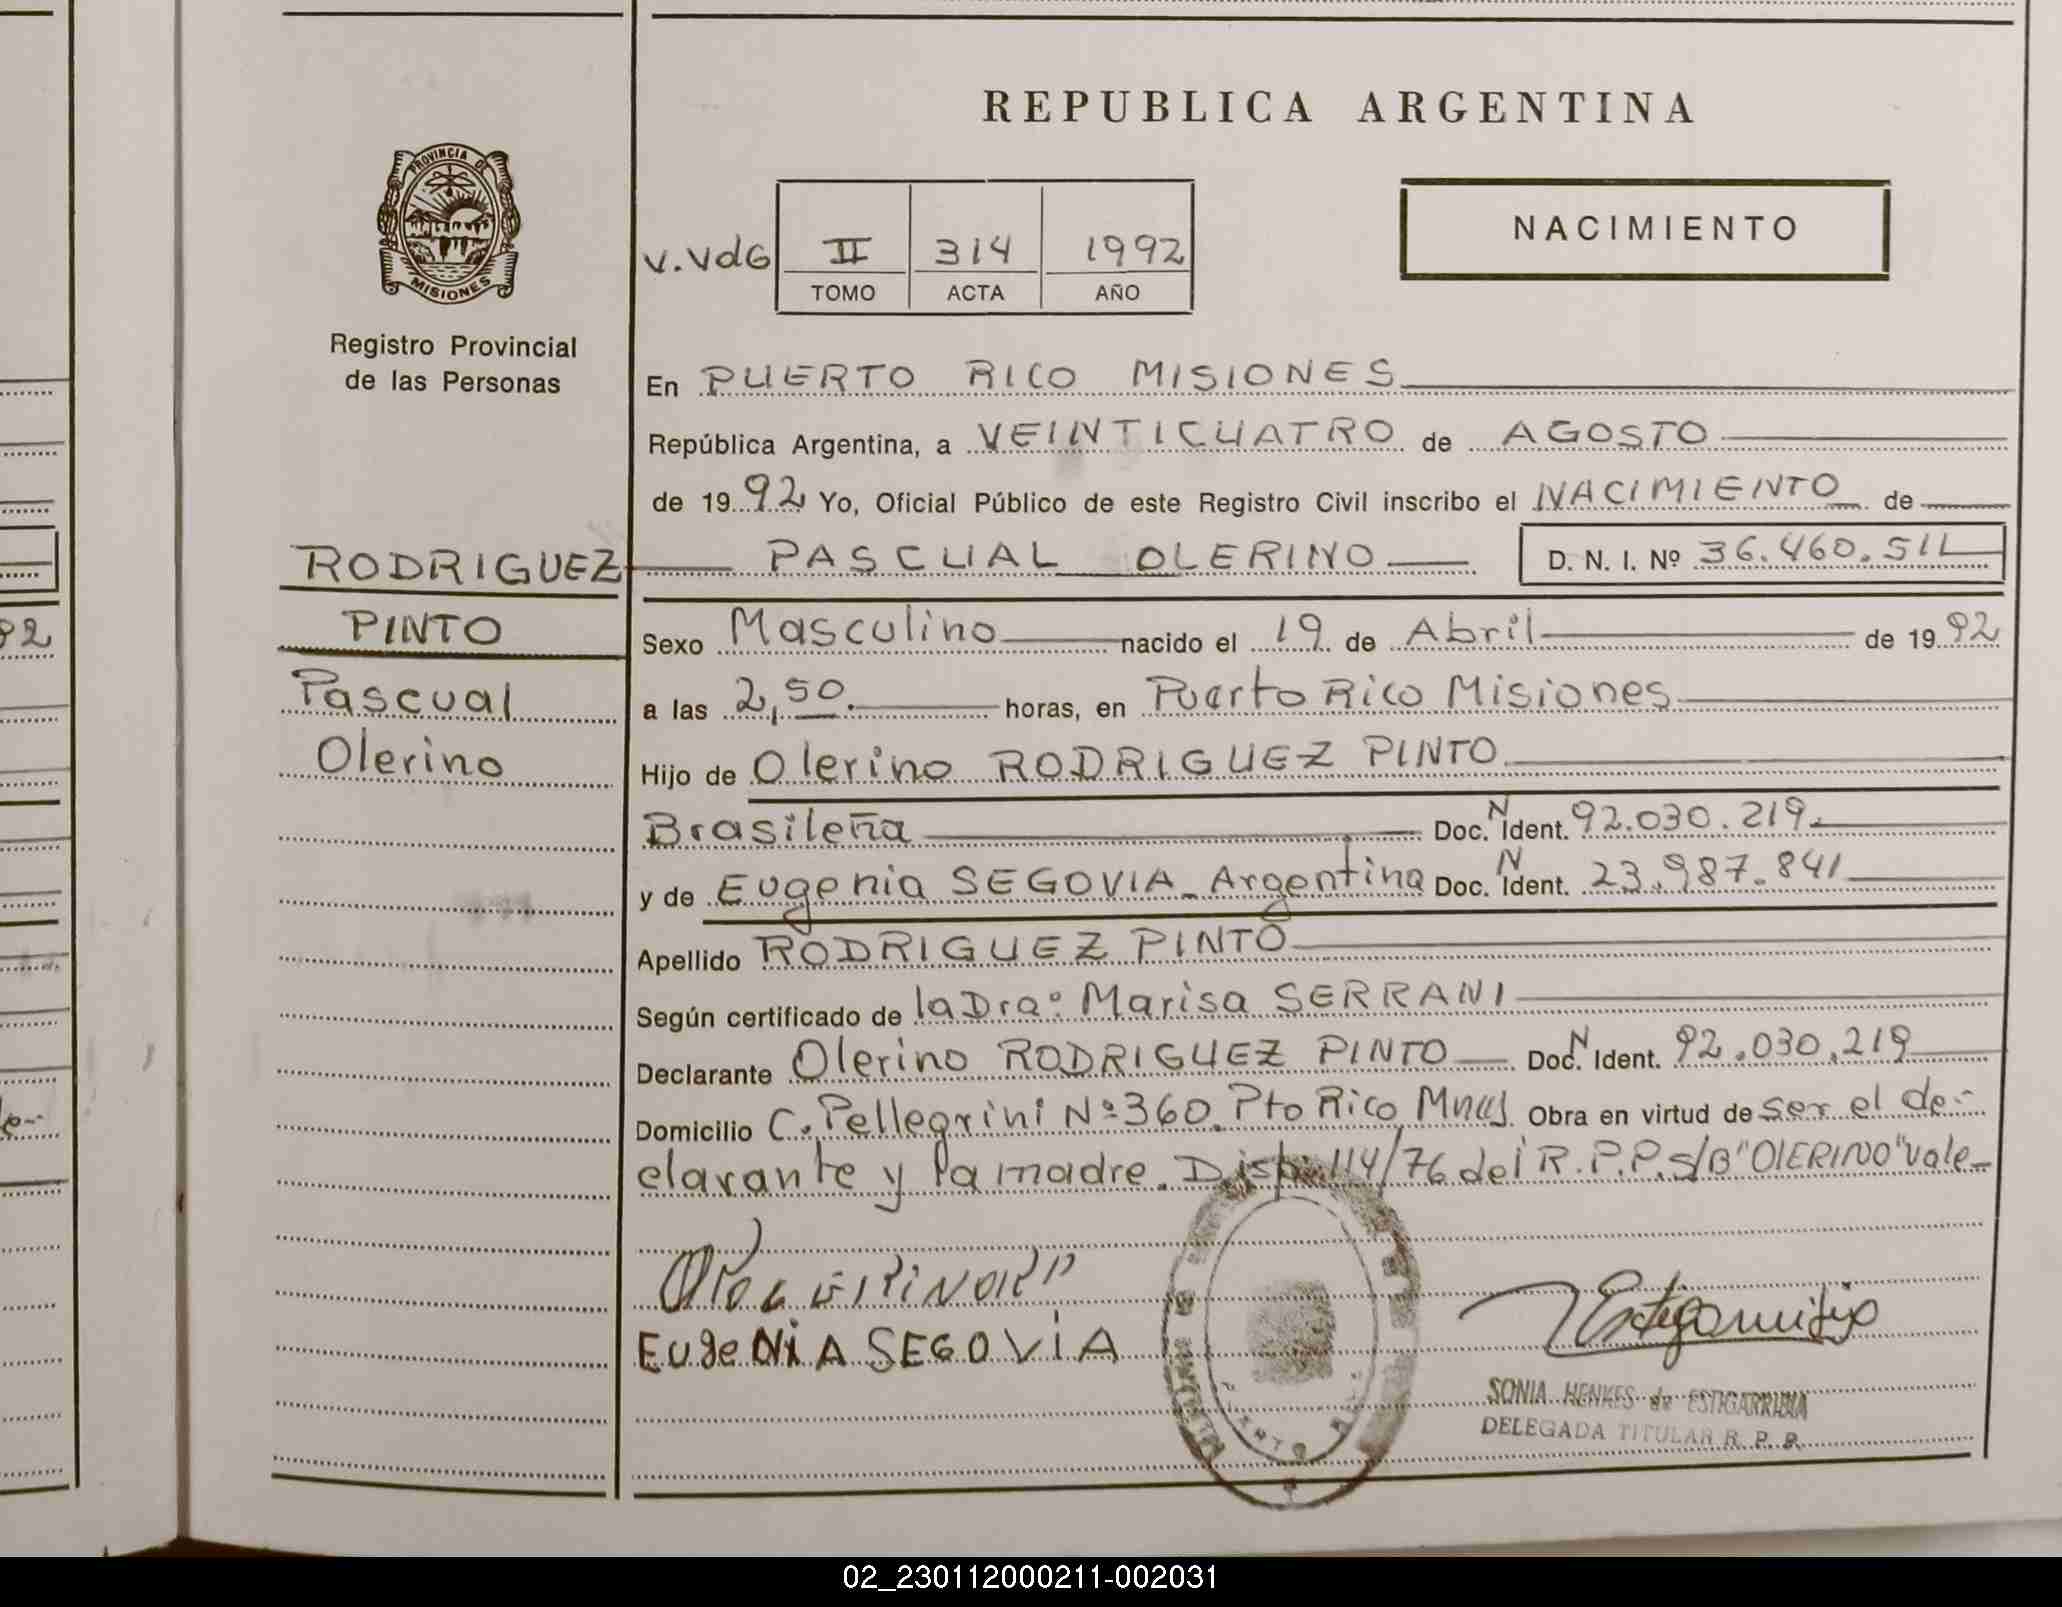 REPUBLICA ARGENTINA
PROVINCIA DE
MISIONES
Registro Provincial
de las Personas
NACIMIENTO
V.VdG II 314 1992
TOMO ACTA AÑO
En PUERTO RICO MISIONES
República Argentina, a VEINTICUATRO de AGOSTO
de 1992 Yo, Oficial Público de este Registro Civil inscribo el NACIMIENTO de
RODRIGUEZ PASCUAL OLERINO D. N. I. Nº 36.460.511
PINTO
Pascual
Olerino
Sexo Masculino nacido el 19 de Abril de 1992
a las 2,50. horas, en Puerto Rico Misiones
Hijo de Olerino RODRIGUEZ PINTO
Brasileña Doc. N Ident. 92.030.219.
y de Eugenia SEGOVIA - Argentina Doc. N Ident. 23.987.841
Apellido RODRIGUEZ PINTO
Según certificado de la Dra: Marisa SERRANI
Declarante Olerino RODRIGUEZ PINTO Doc. N Ident. 92.030.219
Domicilio C. Pellegrini Nº 360. Pto Rico Mnes Obra en virtud de ser el de-
clarante y la madre. Disp. 114/76 del R.P.P. S/B "OlERINO" vale-
EugeNiA SEGOViA
SONIA HENKES de ESTIGARRIBIA
DELEGADA TITULAR R. P. P.
92
02_230112000211-002031